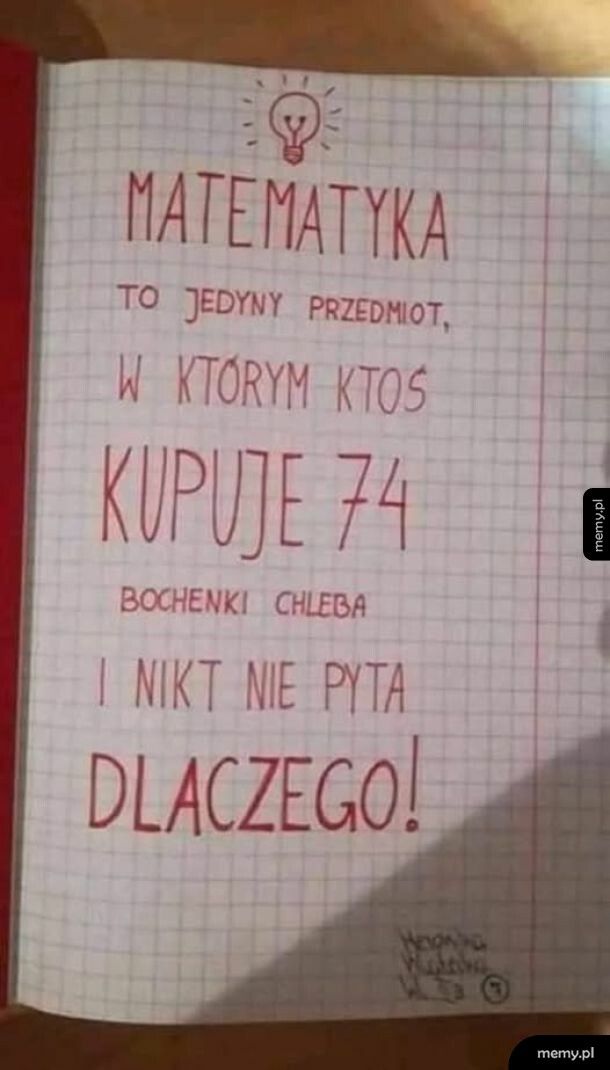 MATEMATYKA
TO JEDYNY PRZEDMIOT,
W KTÓRYM KTOŚ
KUPUJE 74
BOCHENKI CHLEBA
I NIKT NIE PYTA
DLACZEGO!
memy.pl
memy.pl